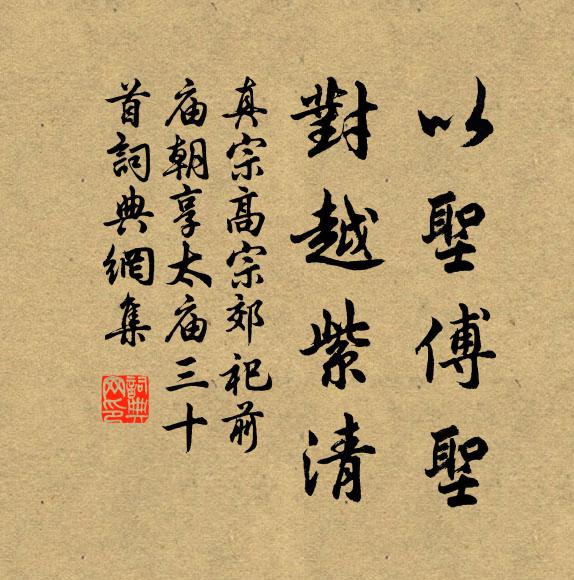 以聖傅聖
對越紫清
真宗高宗郊祀前
庙朝享太庙三十
首詞典網集
詞典网印